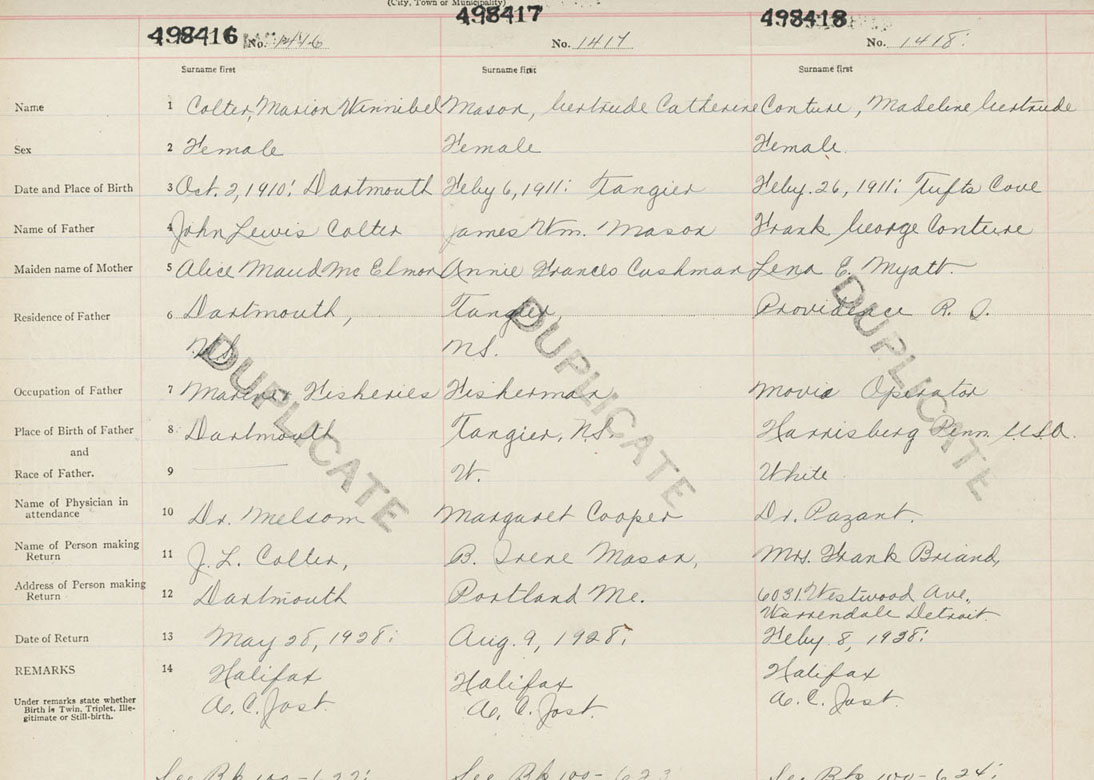 (City, Town or Municipality)
498416 498417 498418
No. 1416 No. 1417 No. 1418
Surname first Surname first Surname first
Name 1 Colter, Marion Winnibel Mason, Gertrude Catherine Conture, Madeline Gertrude
Sex 2 Female Female Female.
Date and Place of Birth 3 Oct. 2, 1910: Dartmouth Feby 6, 1911: Tangier Feby. 26, 1911: Tufts Cove
Name of Father 4 John Lewis Colter James Wm. Mason Frank George Conture
Maiden name of Mother 5 Alice Maud Mc Elmon Annie Frances Cushman Lena E. Myatt.
Residence of Father 6 Dartmouth, Tangier, Providence R. I.
N.S. N.S.
Occupation of Father 7 Marine Fisheries Fisherman Movie Operator
Place of Birth of Father 8 Dartmouth Tangier, N.S. Harrisberg Penn. U.S.A.
and
Race of Father. 9 W. White.
Name of Physician in
attendance 10 Dr. Melsom Margaret Cooper Dr. Pazant.
Name of Person making
Return 11 J. L. Colter, B. Irene Mason, Mrs. Frank Briand,
Address of Person making
Return 12 Dartmouth Portland Me. 6031 Westwood Ave,
Warrendale Detroit.
Date of Return 13 May 28, 1928: Aug. 9, 1928, Feby. 8, 1928:
REMARKS 14 Halifax Halifax Halifax
Under remarks state whether
Birth is Twin, Triplet, Ille-
gitimate or Still-birth.
A. C. Jost. A. C. Jost. A. C. Jost.
DUPLICATE DUPLICATE DUPLICATE
See Bk 100- 622: See Bk 100- 623 See Bk 100- 624: